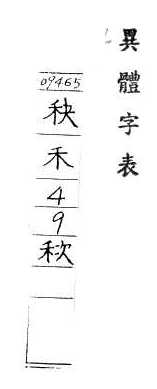 異體字表
09465
秧
禾
4
9
秋